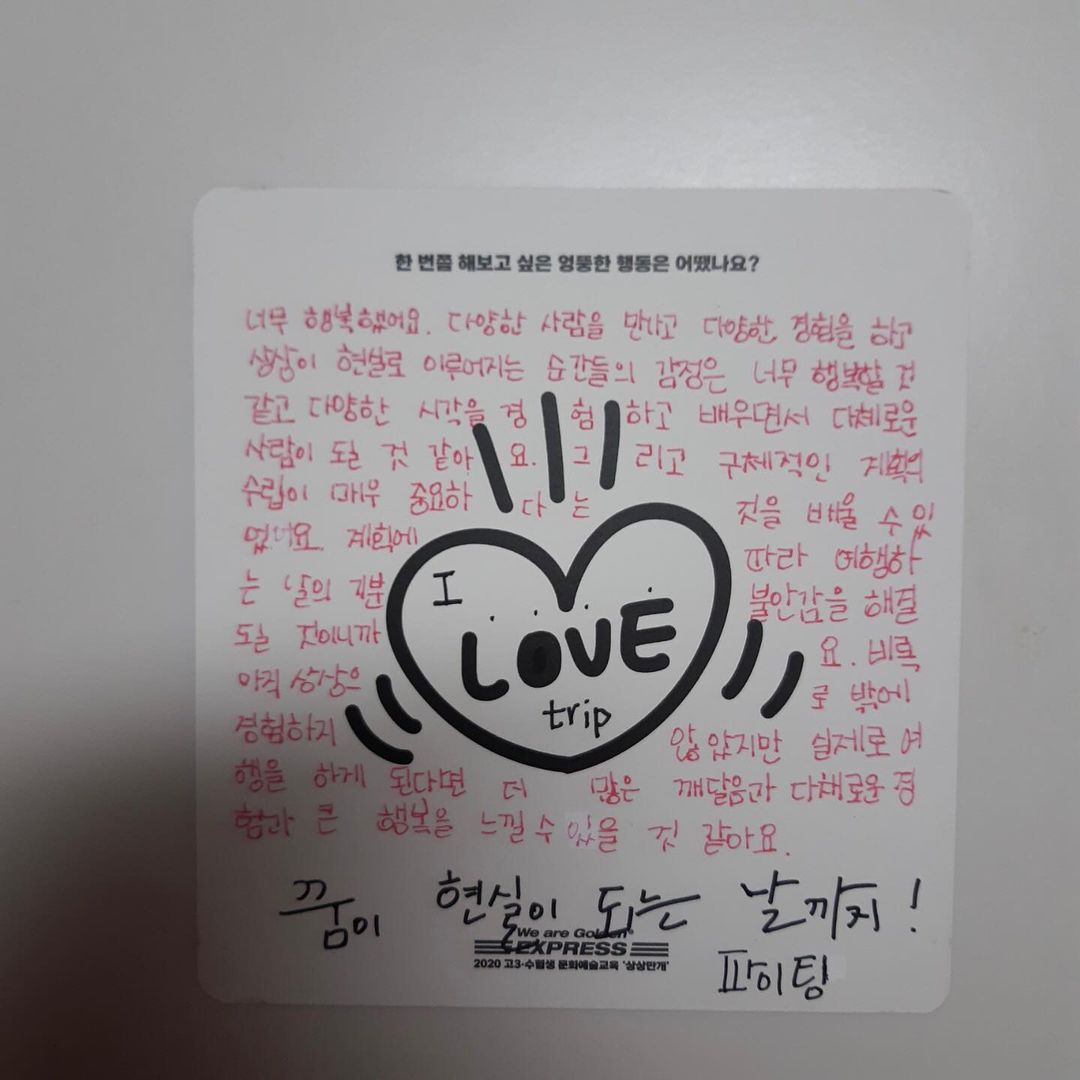 한 번쯤 해보고 싶은 엉뚱한 행동은 어땠나요?
너무 행복했어요. 다양한 사람을 만나고 다양한 경험을 하고
상상이 현실로 이루어지는 순간들의 감정은 너무 행복할 것
같고 다양한 시각을 경험하고 배우면서 대체로운
사람이 될 것 같아요. 그리고 구체적인 계획의
수립이 매우 중요하다는 것을 배울 수 있
었어요. 계획에 따라 여행하
는 날의 기분 불안감을 해결
될 것이니까 요. 비록
아직 상상으 로 밖에
경험하지 않았지만 실제로 여
행을 하게 된다면 더 많은 깨달음과 다채로운 경
험과 큰 행복을 느낄 수 있을 것 같아요.
I
LOVE
trip
꿈이 현실이 되는 날까지!
파이팅
We are Golden
EXPRESS
2020 고3·수험생 문화예술교육 '상상만개'